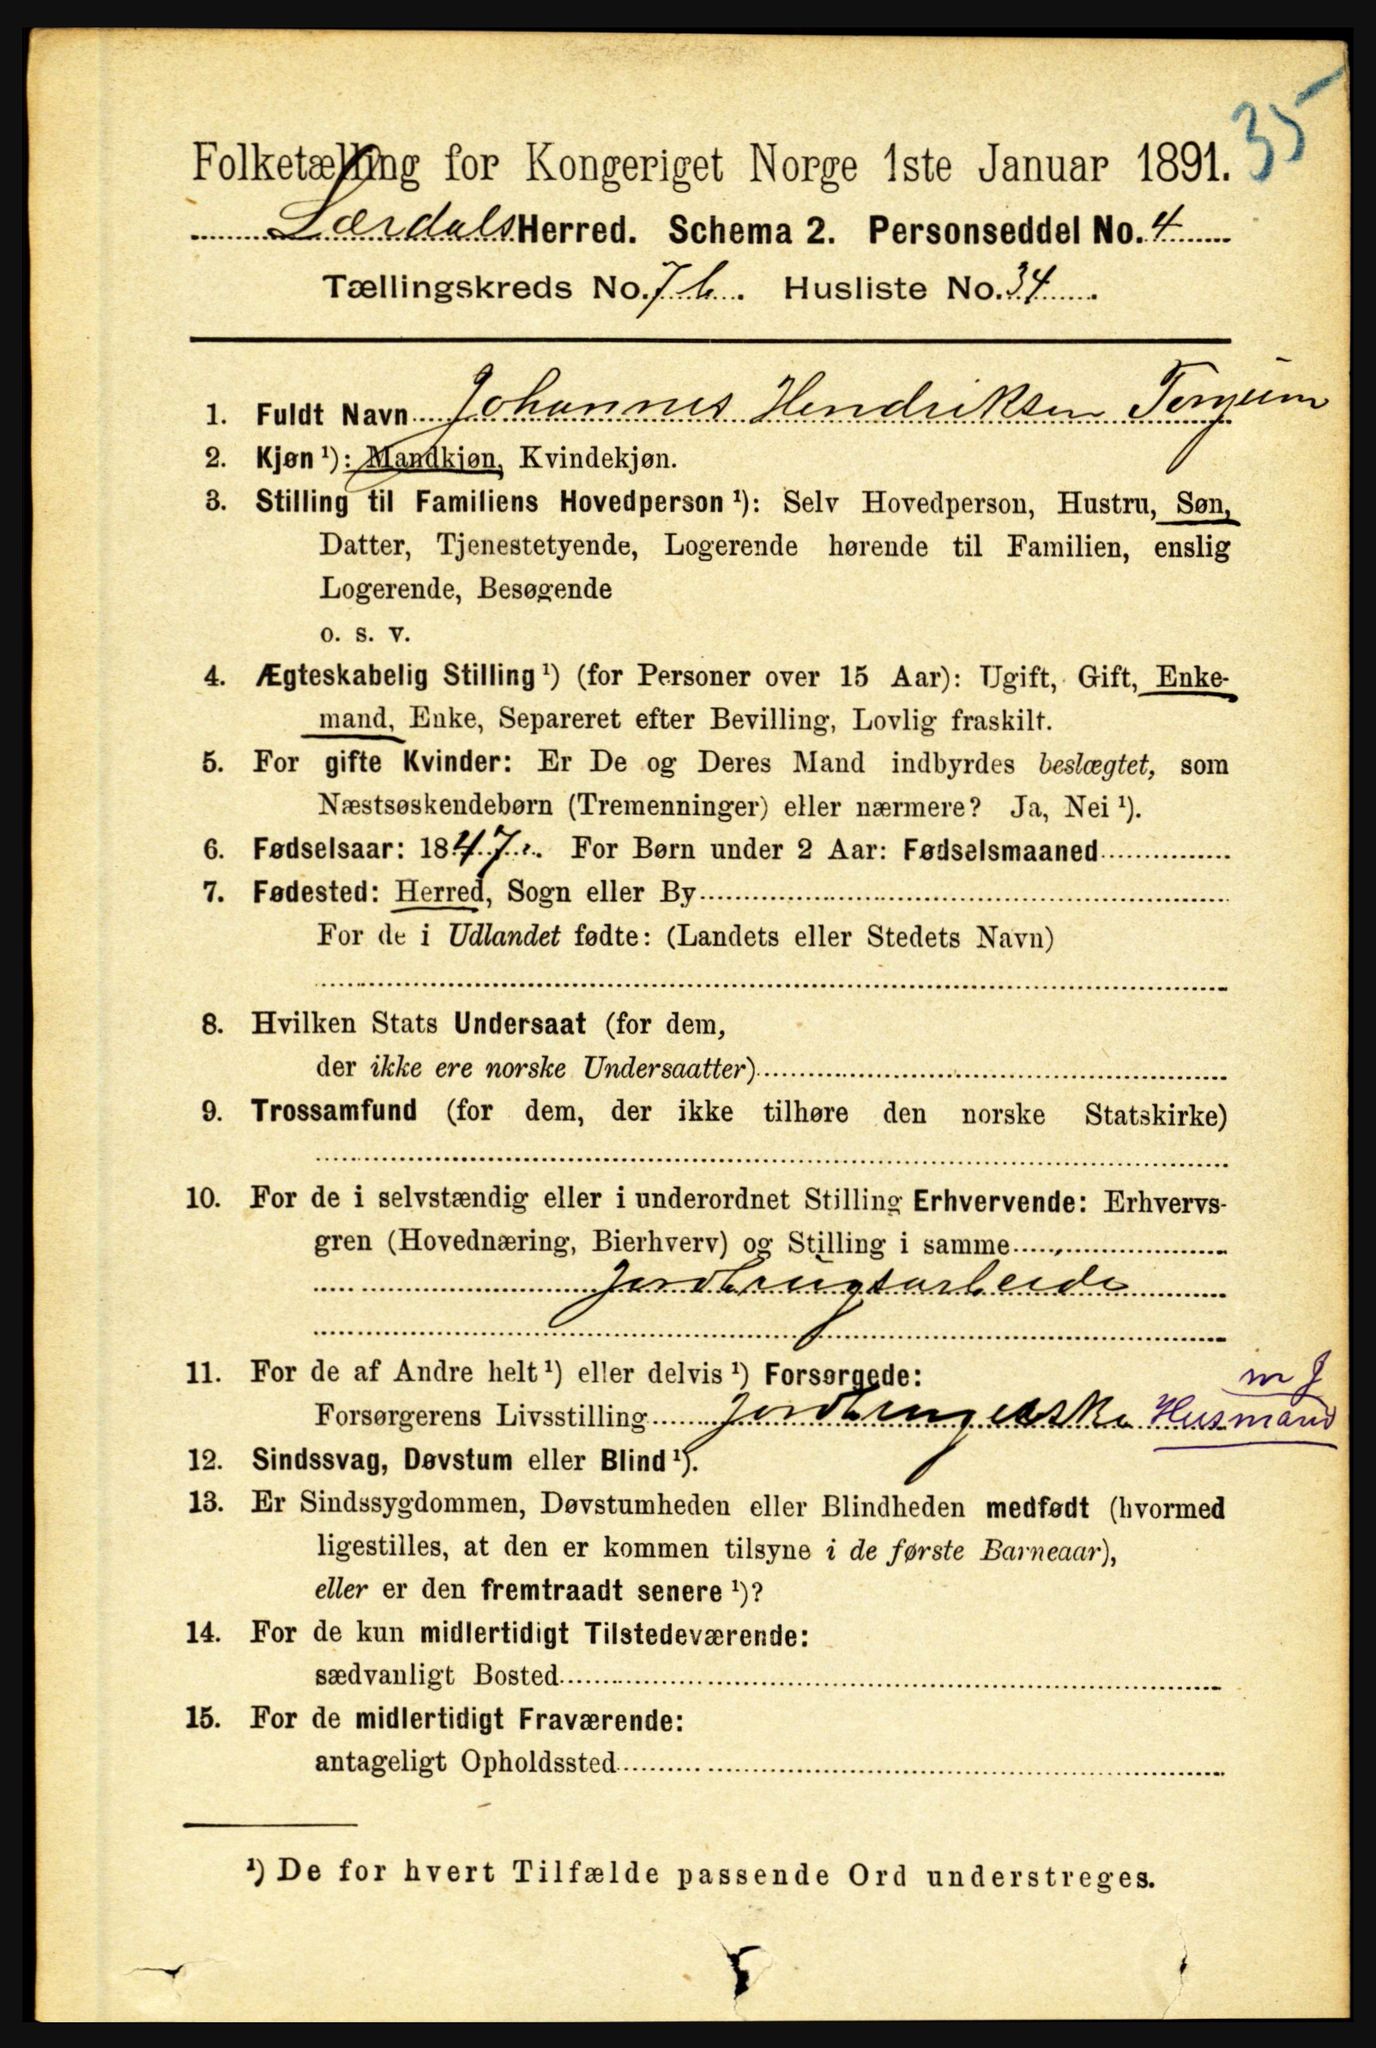 35
Folketælling for Kongeriget Norge 1ste Januar 1891.
Lærdals Herred. Schema 2. Personseddel No. 4
Tællingskreds No. 7 b. Husliste No. 34
1. Fuldt Navn Johannes Hendriksen Tønjum
2. Kjøn ¹): Mandkjøn, Kvindekjøn.
3. Stilling til Familiens Hovedperson ¹): Selv Hovedperson, Hustru, Søn,
Datter, Tjenestetyende, Logerende hørende til Familien, enslig
Logerende, Besøgende
o. s. v.
4. Ægteskabelig Stilling ¹) (for Personer over 15 Aar): Ugift, Gift, Enke-
mand, Enke, Separeret efter Bevilling, Lovlig fraskilt.
5. For gifte Kvinder: Er De og Deres Mand indbyrdes beslægtet, som
Næstsøskendebørn (Tremenninger) eller nærmere? Ja, Nei ¹).
6. Fødselsaar: 1847. For Børn under 2 Aar: Fødselsmaaned
7. Fødested: Herred, Sogn eller By
For de i Udlandet fødte: (Landets eller Stedets Navn)
8. Hvilken Stats Undersaat (for dem,
der ikke ere norske Undersaatter)
9. Trossamfund (for dem, der ikke tilhøre den norske Statskirke)
10. For de i selvstændig eller i underordnet Stilling Erhvervende: Erhvervs-
gren (Hovednæring, Bierhverv) og Stilling i samme
Jordbrugsarbeide
11. For de af Andre helt ¹) eller delvis ¹) Forsørgede:
m J
Forsørgerens Livsstilling Husmand
12. Sindssvag, Døvstum eller Blind ¹).
13. Er Sindssygdommen, Døvstumheden eller Blindheden medfødt (hvormed
ligestilles, at den er kommen tilsyne i de første Barneaar),
eller er den fremtraadt senere ¹)?
14. For de kun midlertidigt Tilstedeværende:
sædvanligt Bosted
15. For de midlertidigt Fraværende:
antageligt Opholdssted
¹) De for hvert Tilfælde passende Ord understreges.